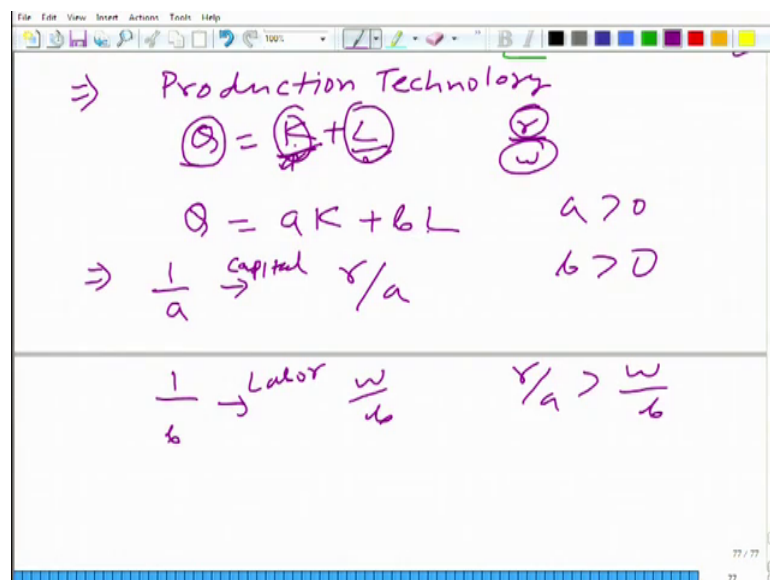 File Edit View Insert Actions Tools Help
100%
B I
⇒ Production Technology
Q = K + L r/w
Q = aK + bL a > 0
⇒ 1/a → capital r/a b > 0
1/b → Labor w/b r/a > w/b
77 / 77
77